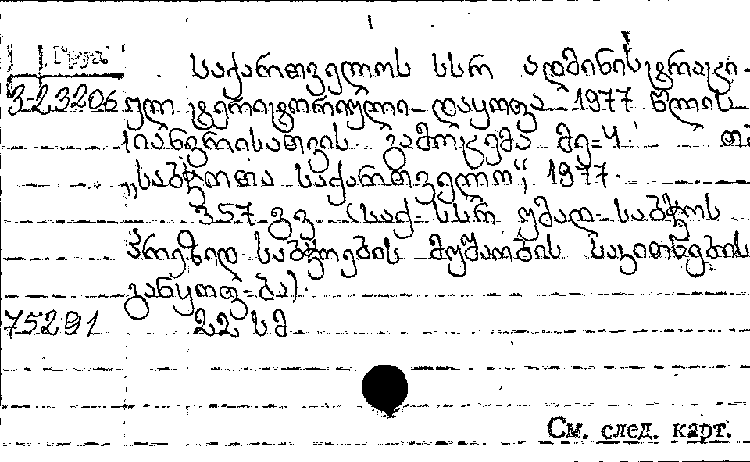 Груз
საქართველოს სსრ ადმინისტრაცი-
3-23206 ულ ტერიტორიული დაყოფა 1977 წლის
1 იანვრისათვის გამოცემა მე-4 თბ
„საბჭოთა საქართველო“, 1977.
357 გვ (საქ- სსრ უმაღ- საბჭოს
პრეზიდ საბჭოების მუშაობის საკითხების
განყოფ-ბა).
75291 22 სმ
См. след. карт.